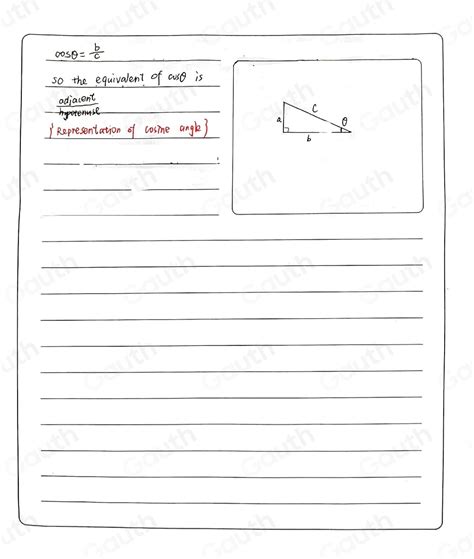 cosθ = b/c
so the equivalent of cosθ is
adjacent
hypotenuse
{Representation of cosine angle}
C
a
θ
b
Gauth